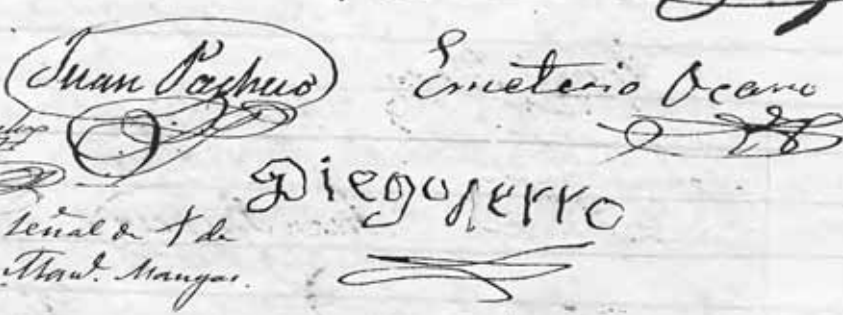 Juan Pacheco
Emeterio Ocaño
Diego serro
señal de + de
Man.l Mangas.